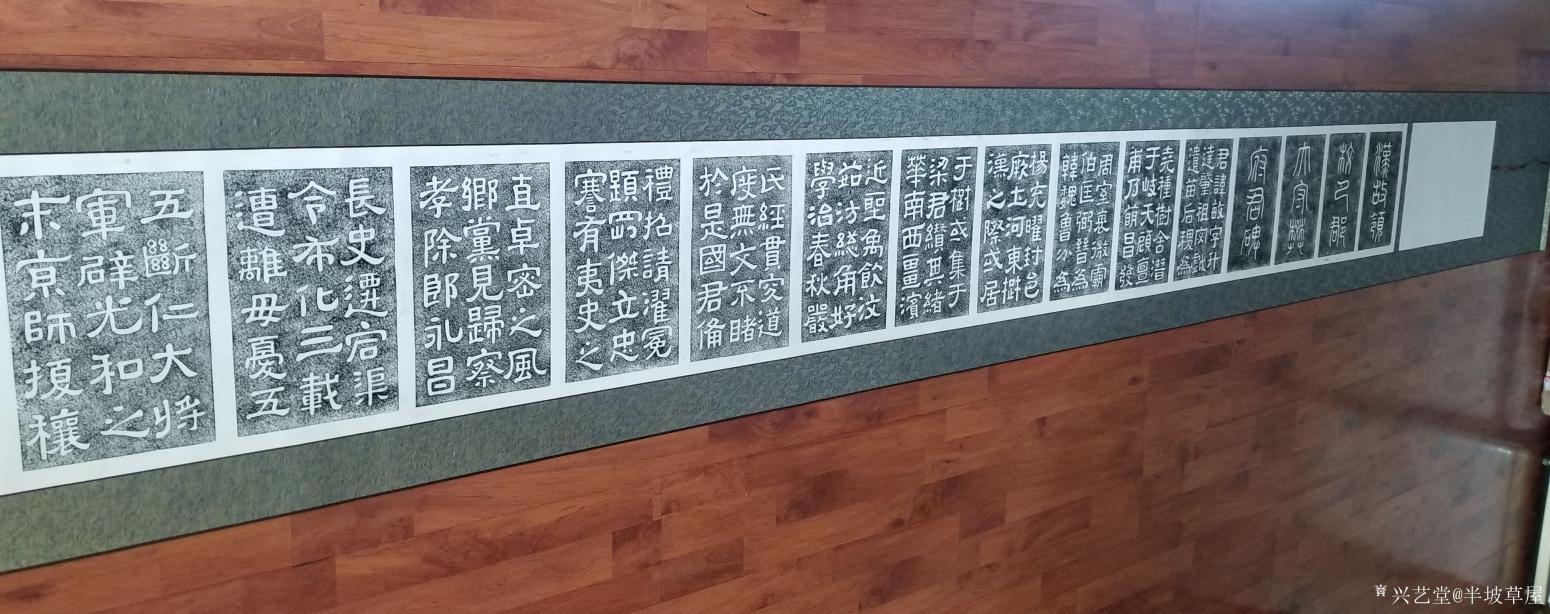 漢故領
校巴郡
太守樊
府君碑
君諱敏字升
達肇祖宓戲
遺苗后稷為
堯種樹舍潛
于岐天顧亶
甫乃萌昌發
周室衰微霸
伯匡弼晉為
韓魏魯分為
楊充曜封邑
厥土河東楚
漢之際或居
于楚或集于
梁君纘其緒
華南西畺濱
近聖禹飲汶
茹汸總角好
學治春秋嚴
氏經貫究道
度無文不睹
於是國君備
禮招請濯冕
題剛傑立忠
謇有夷史之
直卓密之風
鄉黨見歸察
孝除郎永昌
長史遷宕渠
令布化三載
遭離母憂五
五斷仁大將
軍辟光和之
末京師擾穰
兴艺堂@半坡草屋